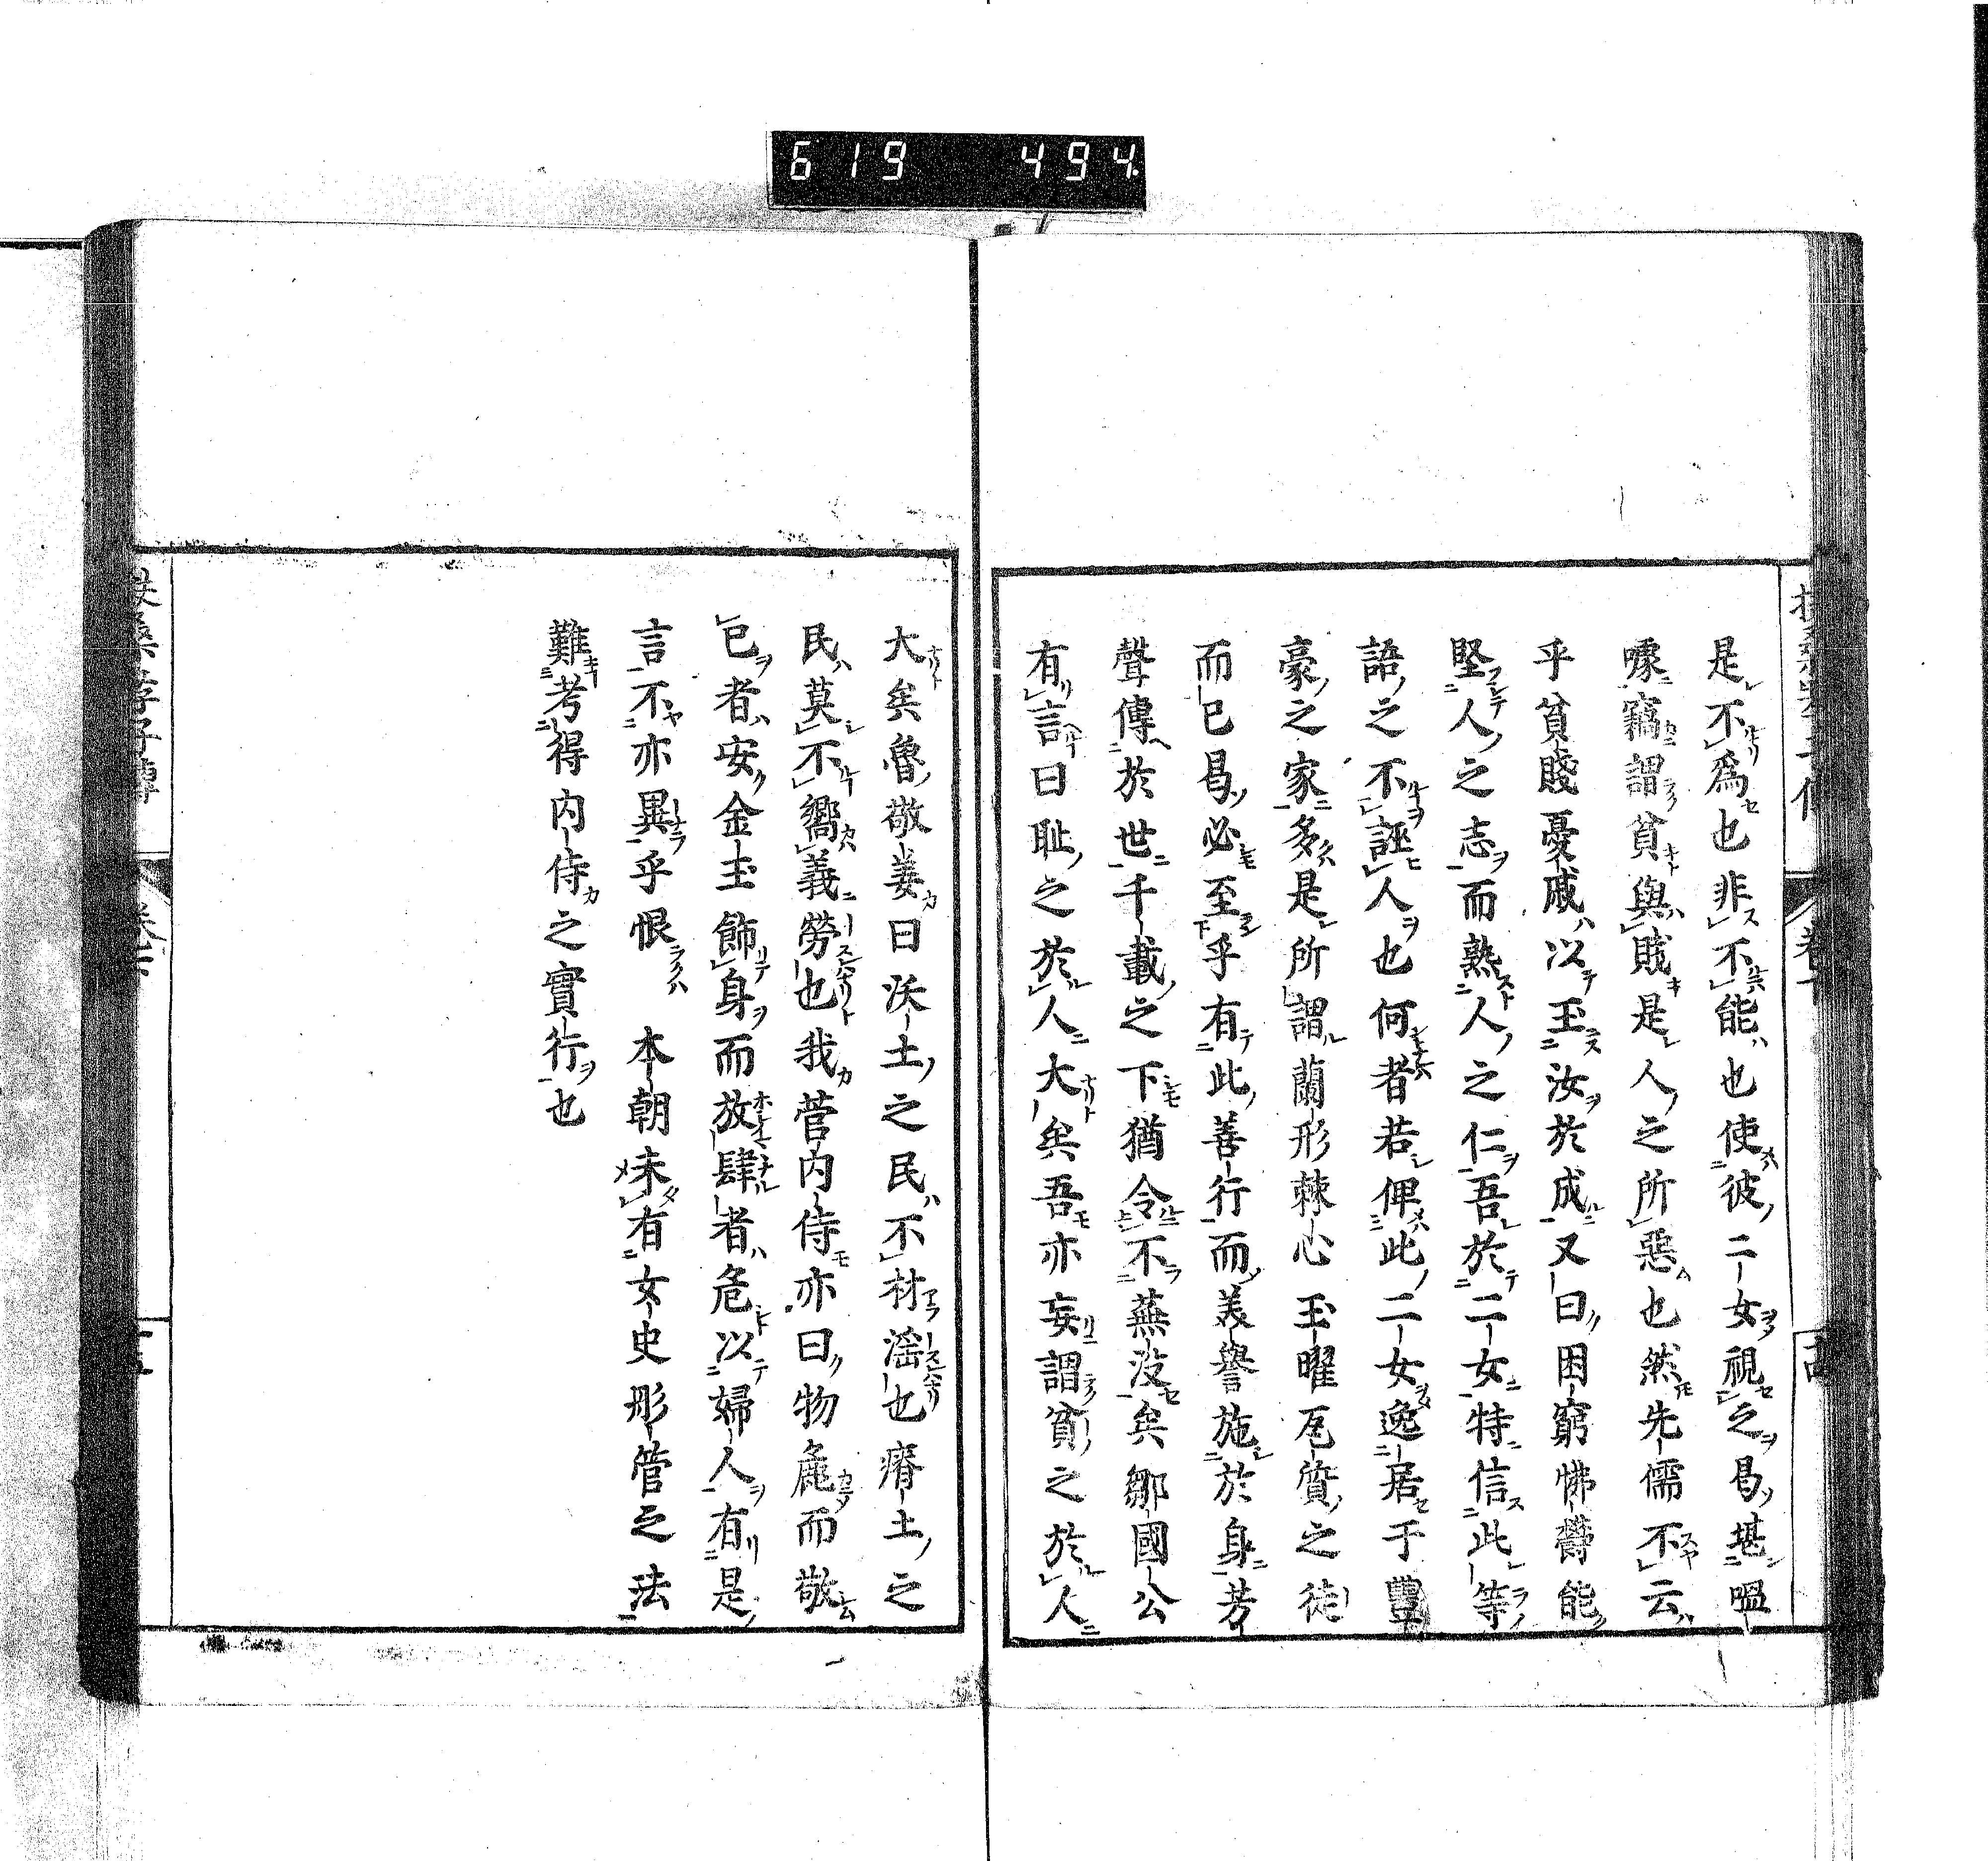 619 494
是不爲也非不能也使彼二女視之曷堪嗢
噱竊謂貧與賎是人之所惡也然先儒不云
乎貧賤憂戚以玉汝於成又曰困窮怫鬱能
堅人之志而熟人之仁吾於二女特信此等
語之不誣人也何者若俾此二女逸居于豐
豪之家多是所謂蘭形棘心玉曜瓦質之徒
而已曷必至乎有此善行而美譽施於身芳
聲傳於世千載之下猶令不蕪沒矣鄒國公
有言曰耻之於人大矣吾亦妄謂貧之於人
大矣魯敬姜曰沃土之民不材滛也瘠土之
民莫不嚮義勞也我菅内侍亦曰物麁而敬
已者安金玉飾身而放肆者危以婦人有是
言不亦異乎恨 本朝未有女史彤管之法
難考得内侍之實行也